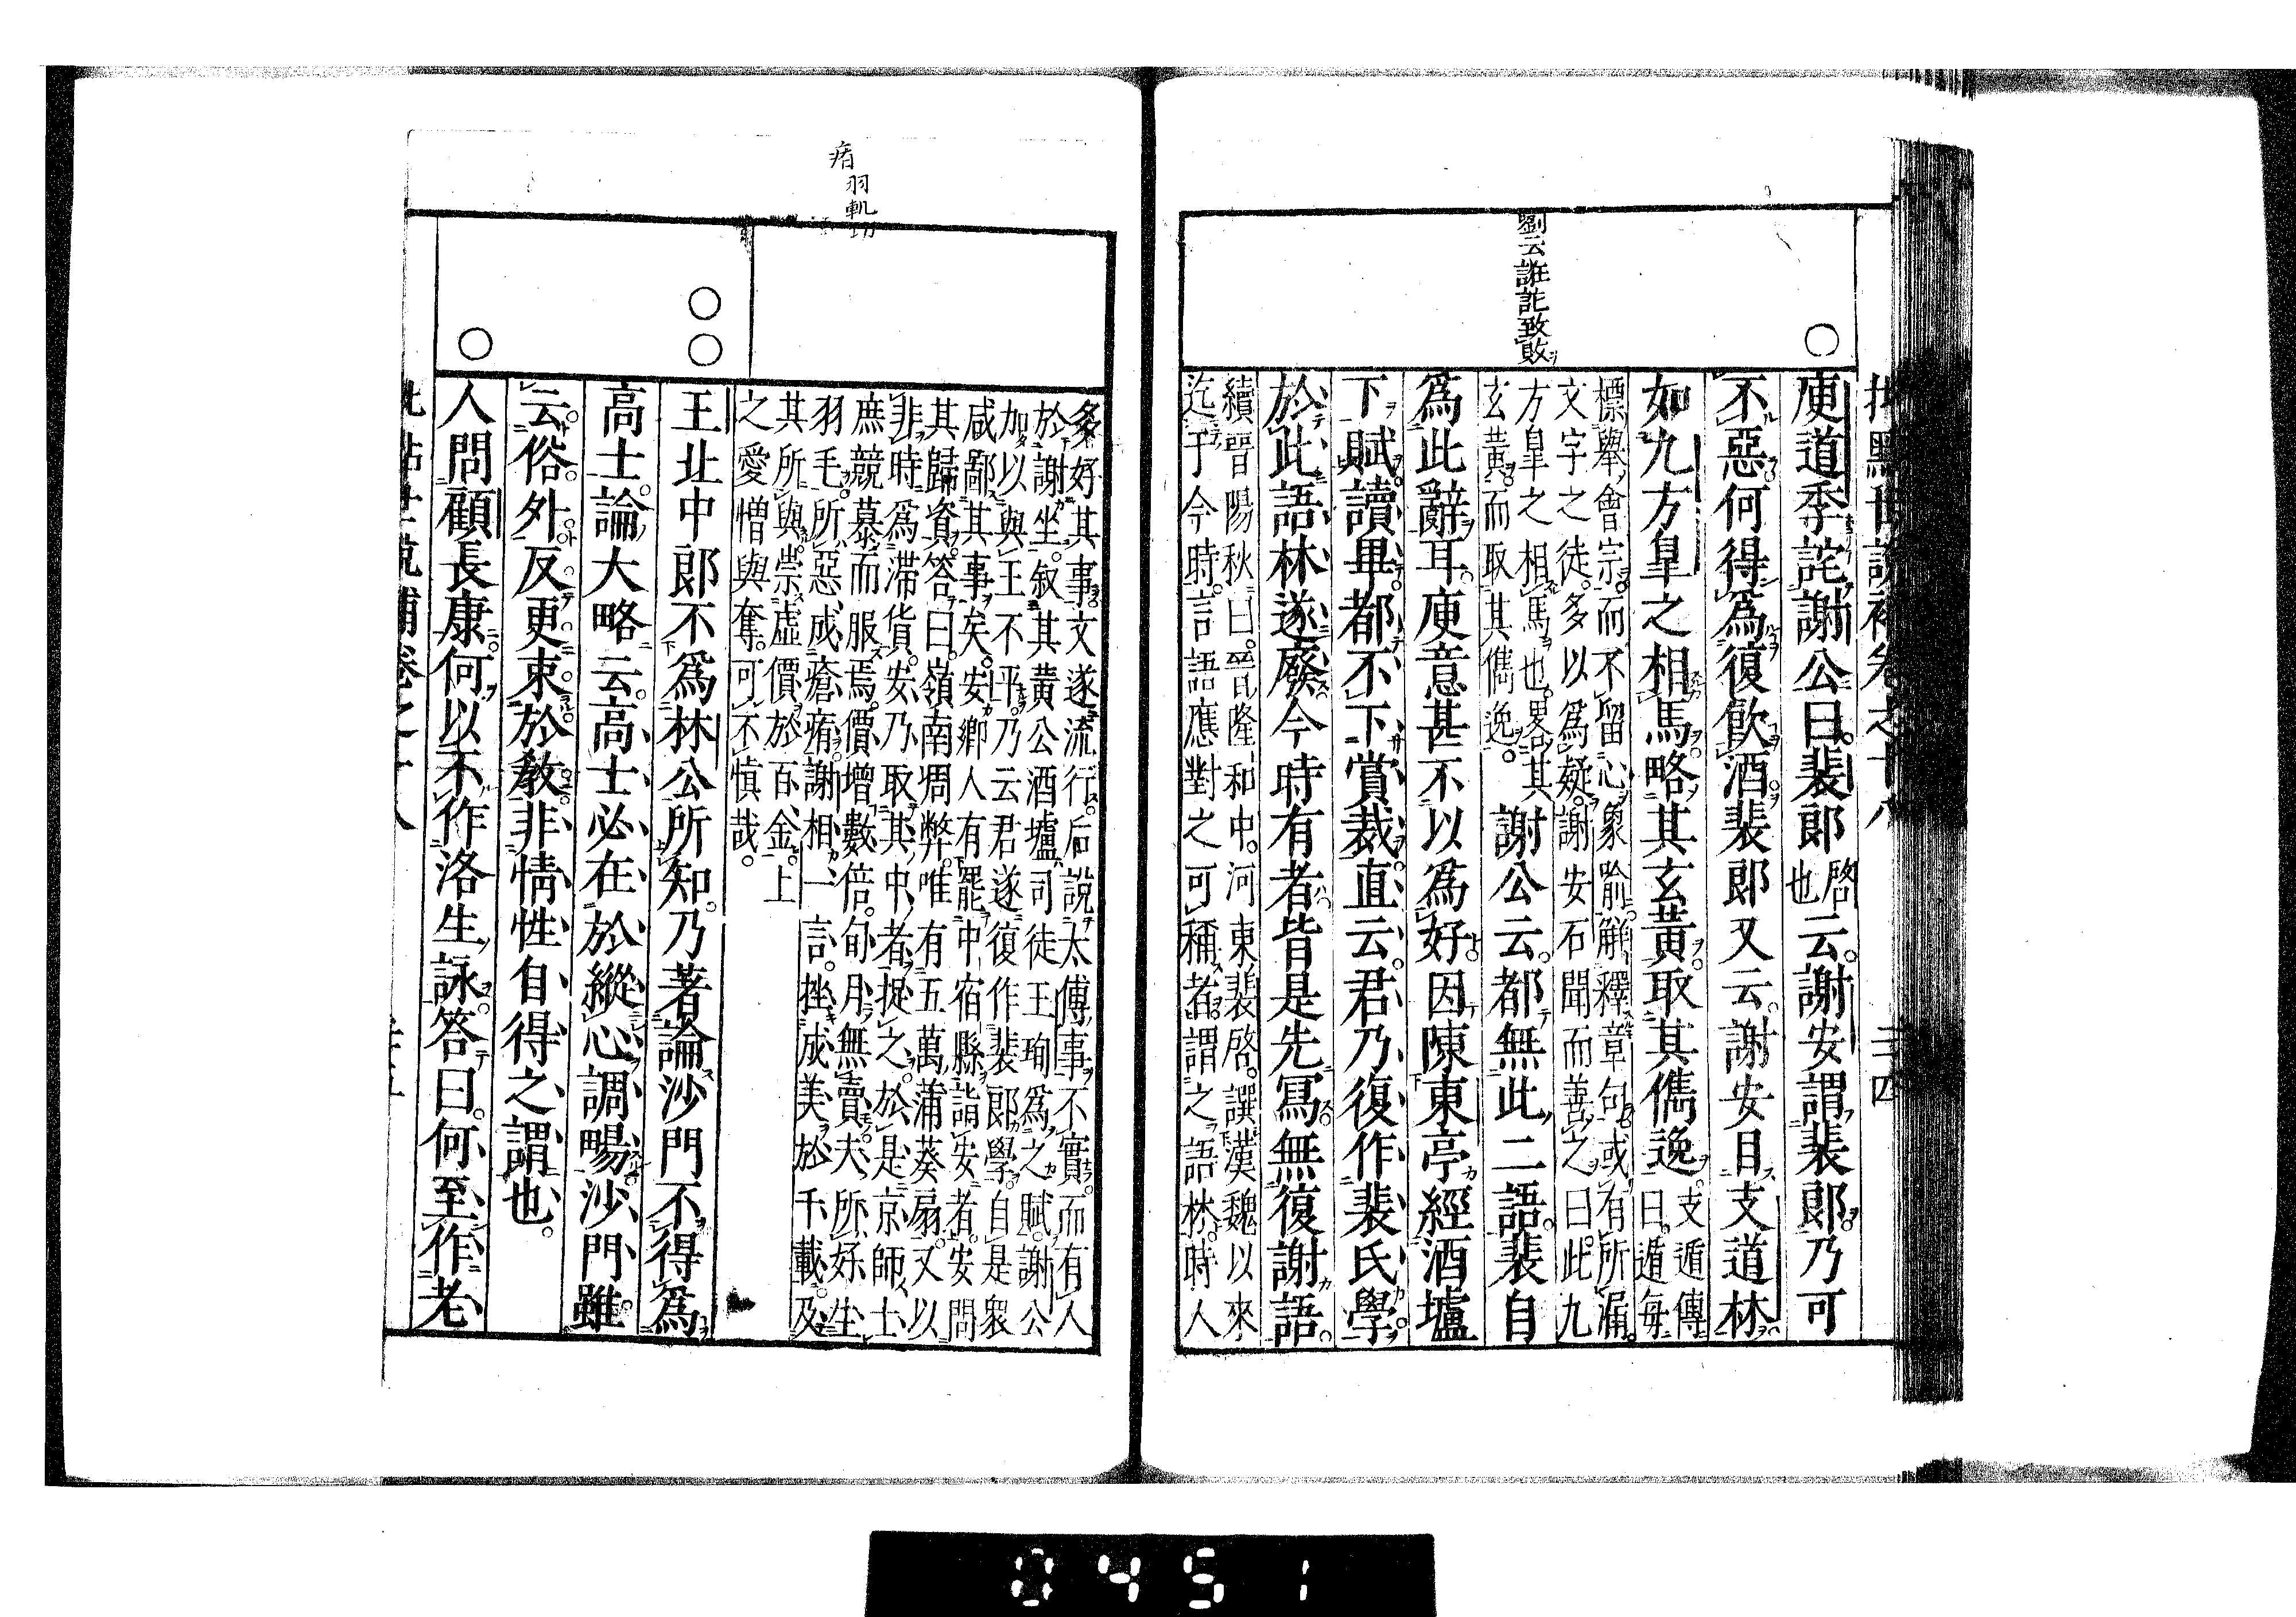 批點世說補卷之十八
三四
劉云誑詑致敗
庾道季詫謝公曰裴郎啓也云謝安謂裴郎乃可
不惡何得爲復飲酒裴郎又云謝安目支道林
如九方臯之相馬略其玄黃取其儁逸支遁傳曰遁每
標舉會宗而不留心象喻解釋章句或有所漏
文字之徒多以爲疑謝安石聞而善之曰此九
方臯之相馬也畧其
玄黃而取其儁逸謝公云都無此二語裴自
爲此辭耳庾意甚不以爲好因陳東亭經酒壚
下賦讀畢都不下賞裁直云君乃復作裴氏學
於此語林遂廢今時有者皆是先寫無復謝語
續晉陽秋曰晉隆和中河東裴啓譔漢魏以來
迄于今時言語應對之可稱者謂之語林時人
多好其事文遂流行后說太傅事不實而有人
於謝坐叙其黃公酒壚司徒王珣爲之賦謝公
加以與王不平乃云君遂復作裴郎學自是衆
咸鄙其事矣安鄉人有罷中宿縣詣安者安問
其歸資答曰嶺南凋弊唯有五萬蒲葵扇又以
非時爲滯貨安乃取其中者捉之於是京師士
庶競慕而服焉價增數倍旬月無賣夫所好生
羽毛所惡成瘡痏謝相一言挫成美於千載及
其所與崇虛價於百金上
之愛憎與奪可不愼哉
王北中郎不爲林公所知乃著論沙門不得爲
高士論大略云高士必在於縱心調暢沙門雖
云俗外反更束於敎非情性自得之謂也
人問顧長康何以不作洛生詠答曰何至作老
批點世說補卷之十八